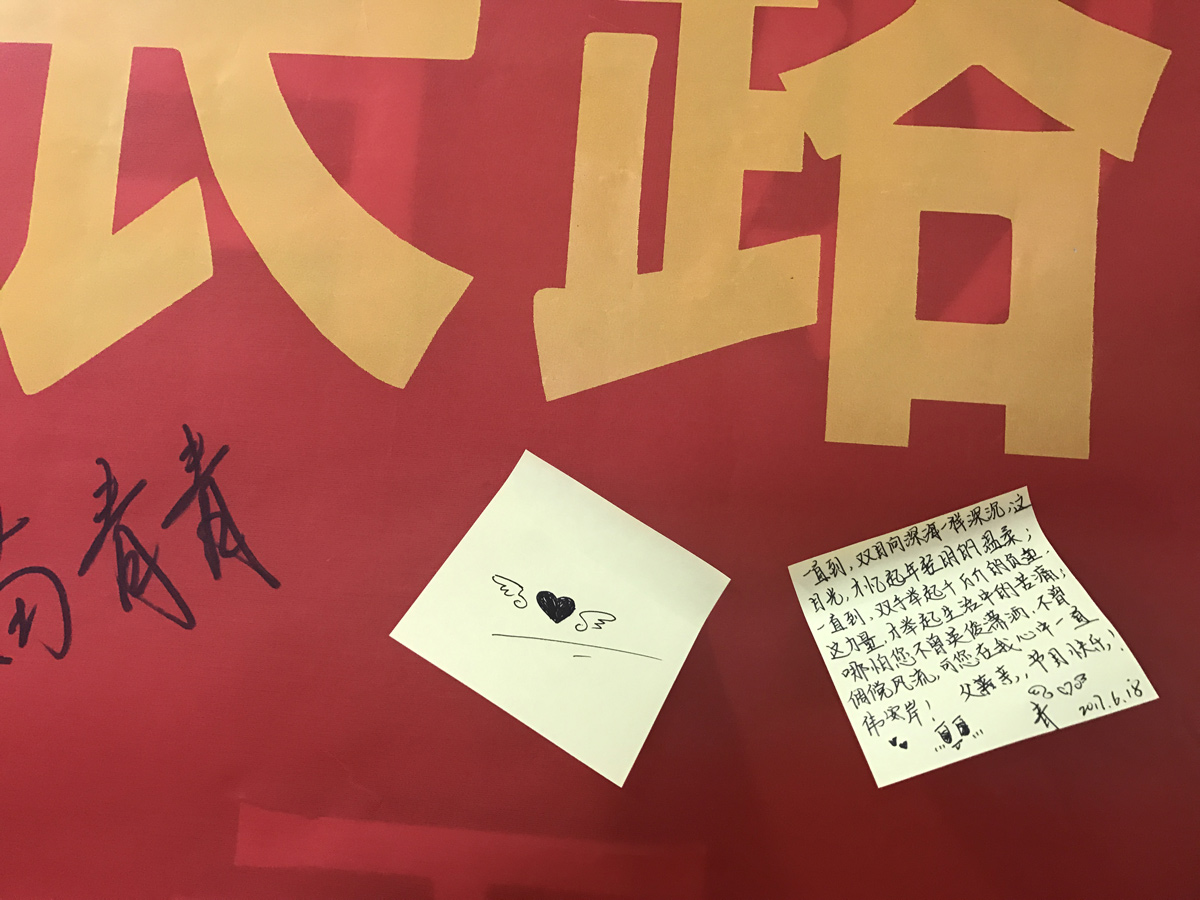 长路
青青
一直到，双目向深海一样深沉，这
目光，才忆起年轻时的温柔；
一直到，双手举起千斤的负重，
这力量，才举起生活中的苦痛；
哪怕您不曾英俊潇洒，不曾
倜傥风流，可您在我心中一直
伟岸！ 父亲，节日快乐！
青 2017.6.18